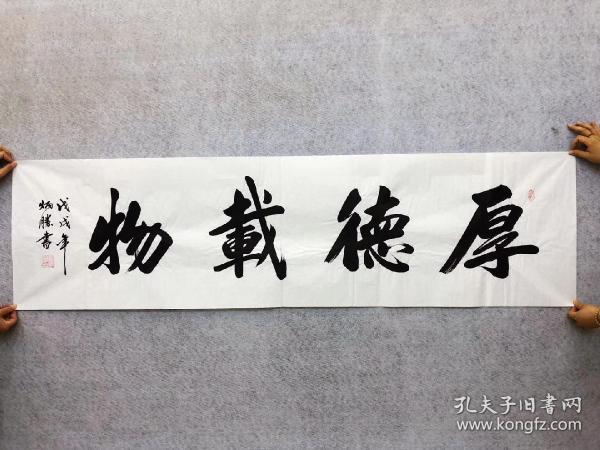 厚德載物
戊戌年
炳勝書
孔夫子旧書网
www.kongfz.com